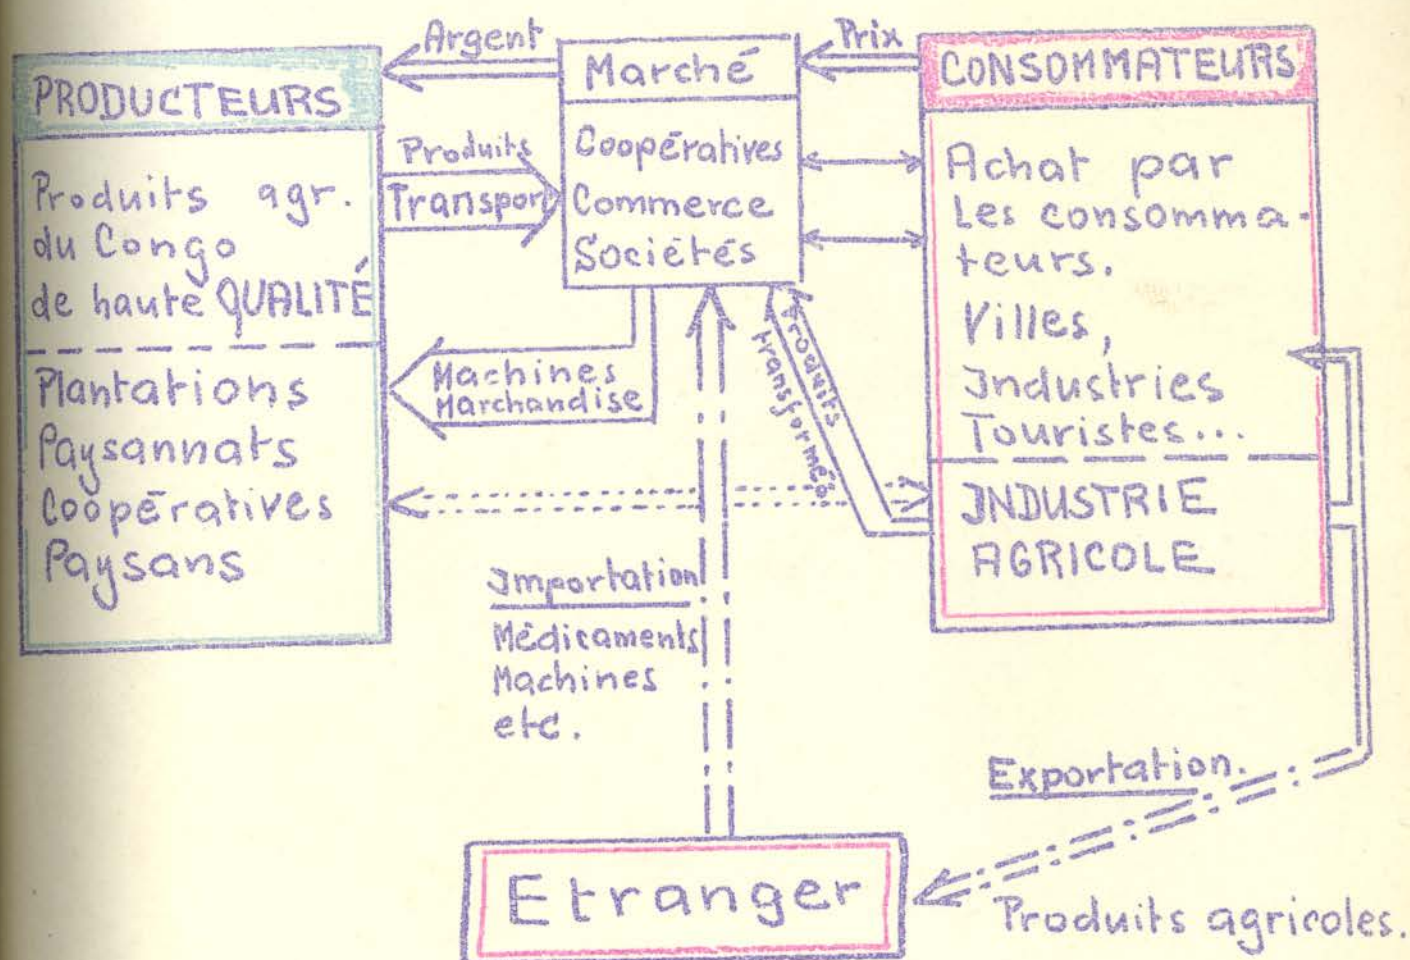 PRODUCTEURS
Produits agr.
du Congo
de haute QUALITÉ
Plantations
Paysannats
Coopératives
Paysans
Argent
Produits
Transport
Machines
Marchandise
Marché
Coopératives
Commerce
Sociétés
Prix
CONSOMMATEURS
Achat par
Les consomma-
teurs.
Villes,
Industries
Touristes...
INDUSTRIE
AGRICOLE
Produits
transformés
Importation
Médicaments
Machines
etc.
Exportation.
Etranger
Produits agricoles.